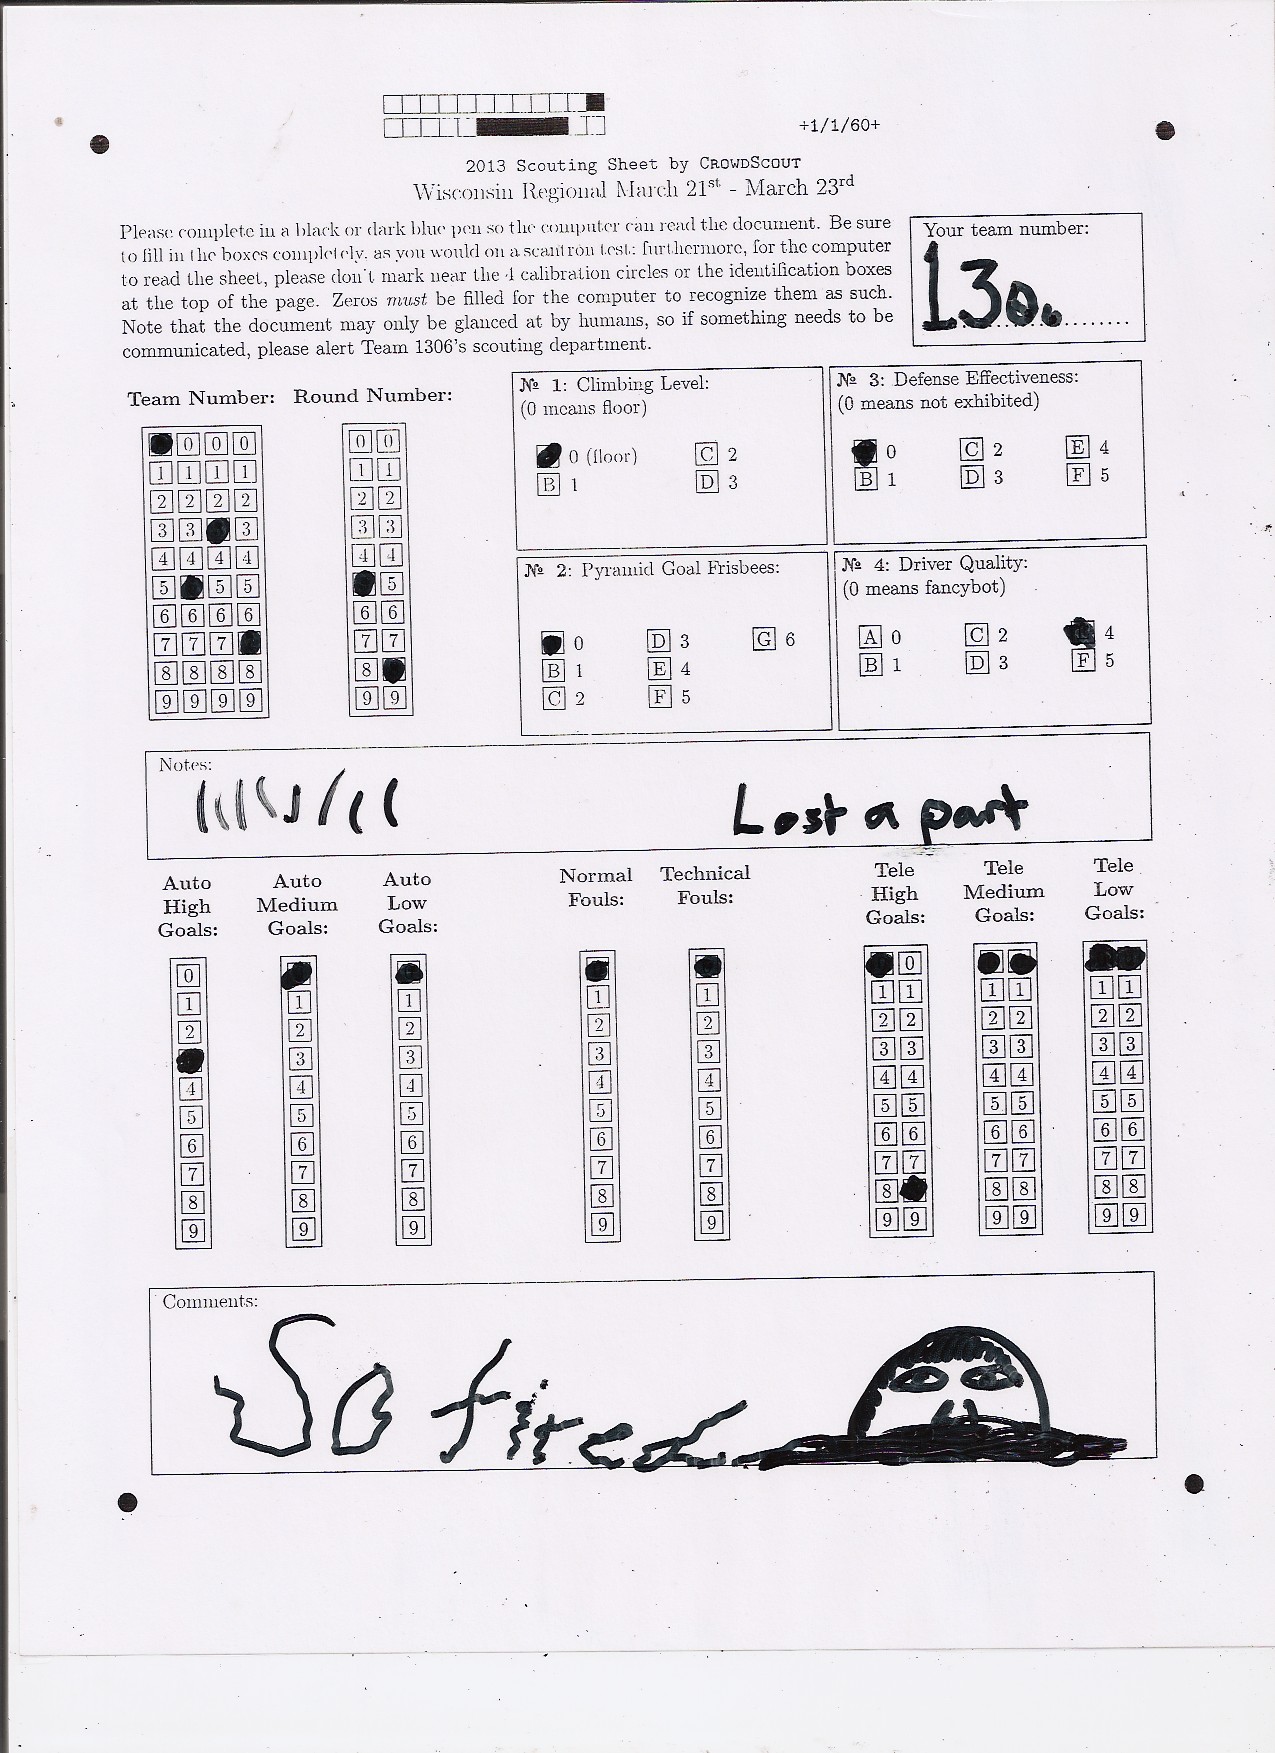 +1/1/60+
2013 Scouting Sheet by CROWDSCOUT
Wisconsin Regional March 21st - March 23rd
Please complete in a black or dark blue pen so the computer can read the document. Be sure
to fill in the boxes completely, as you would on a scantron test; furthermore, for the computer
to read the sheet, please don't mark near the 4 calibration circles or the identification boxes
at the top of the page. Zeros must be filled for the computer to recognize them as such.
Note that the document may only be glanced at by humans, so if something needs to be
communicated, please alert Team 1306's scouting department.
Your team number:
1306
Team Number: Round Number:
0 0 0 0 0
1 1 1 1 1 1
2 2 2 2 2 2
3 3 3 3 3
4 4 4 4 4 4
5 5 5 5
6 6 6 6 6 6
7 7 7 7 7
8 8 8 8 8
9 9 9 9 9 9
№ 1: Climbing Level:
(0 means floor)
0 (floor) C 2
B 1 D 3
№ 3: Defense Effectiveness:
(0 means not exhibited)
0 C 2 E 4
B 1 D 3 F 5
№ 2: Pyramid Goal Frisbees:
0 D 3 G 6
B 1 E 4
C 2 F 5
№ 4: Driver Quality:
(0 means fancybot)
A 0 C 2 4
B 1 D 3 F 5
Notes:
Lost a part
Auto High Goals:
0
1
2
4
5
6
7
8
9
Auto Medium Goals:
1
2
3
4
5
6
7
8
9
Auto Low Goals:
1
2
3
4
5
6
7
8
9
Normal Fouls:
1
2
3
4
5
6
7
8
9
Technical Fouls:
1
2
3
4
5
6
7
8
9
Tele High Goals:
0
1 1
2 2
3 3
4 4
5 5
6 6
7 7
8
9 9
Tele Medium Goals:
1 1
2 2
3 3
4 4
5 5
6 6
7 7
8 8
9 9
Tele Low Goals:
1 1
2 2
3 3
4 4
5 5
6 6
7 7
8 8
9 9
Comments:
So tired